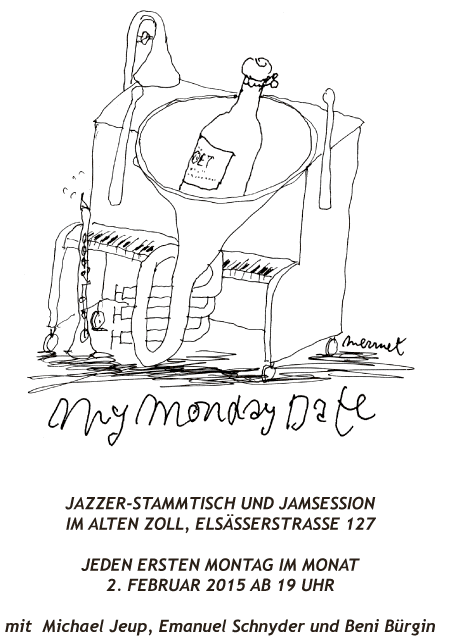 OËT
mermet
My Monday Date
JAZZER-STAMMTISCH UND JAMSESSION
IM ALTEN ZOLL, ELSÄSSERSTRASSE 127
JEDEN ERSTEN MONTAG IM MONAT
2. FEBRUAR 2015 AB 19 UHR
mit Michael Jeup, Emanuel Schnyder und Beni Bürgin